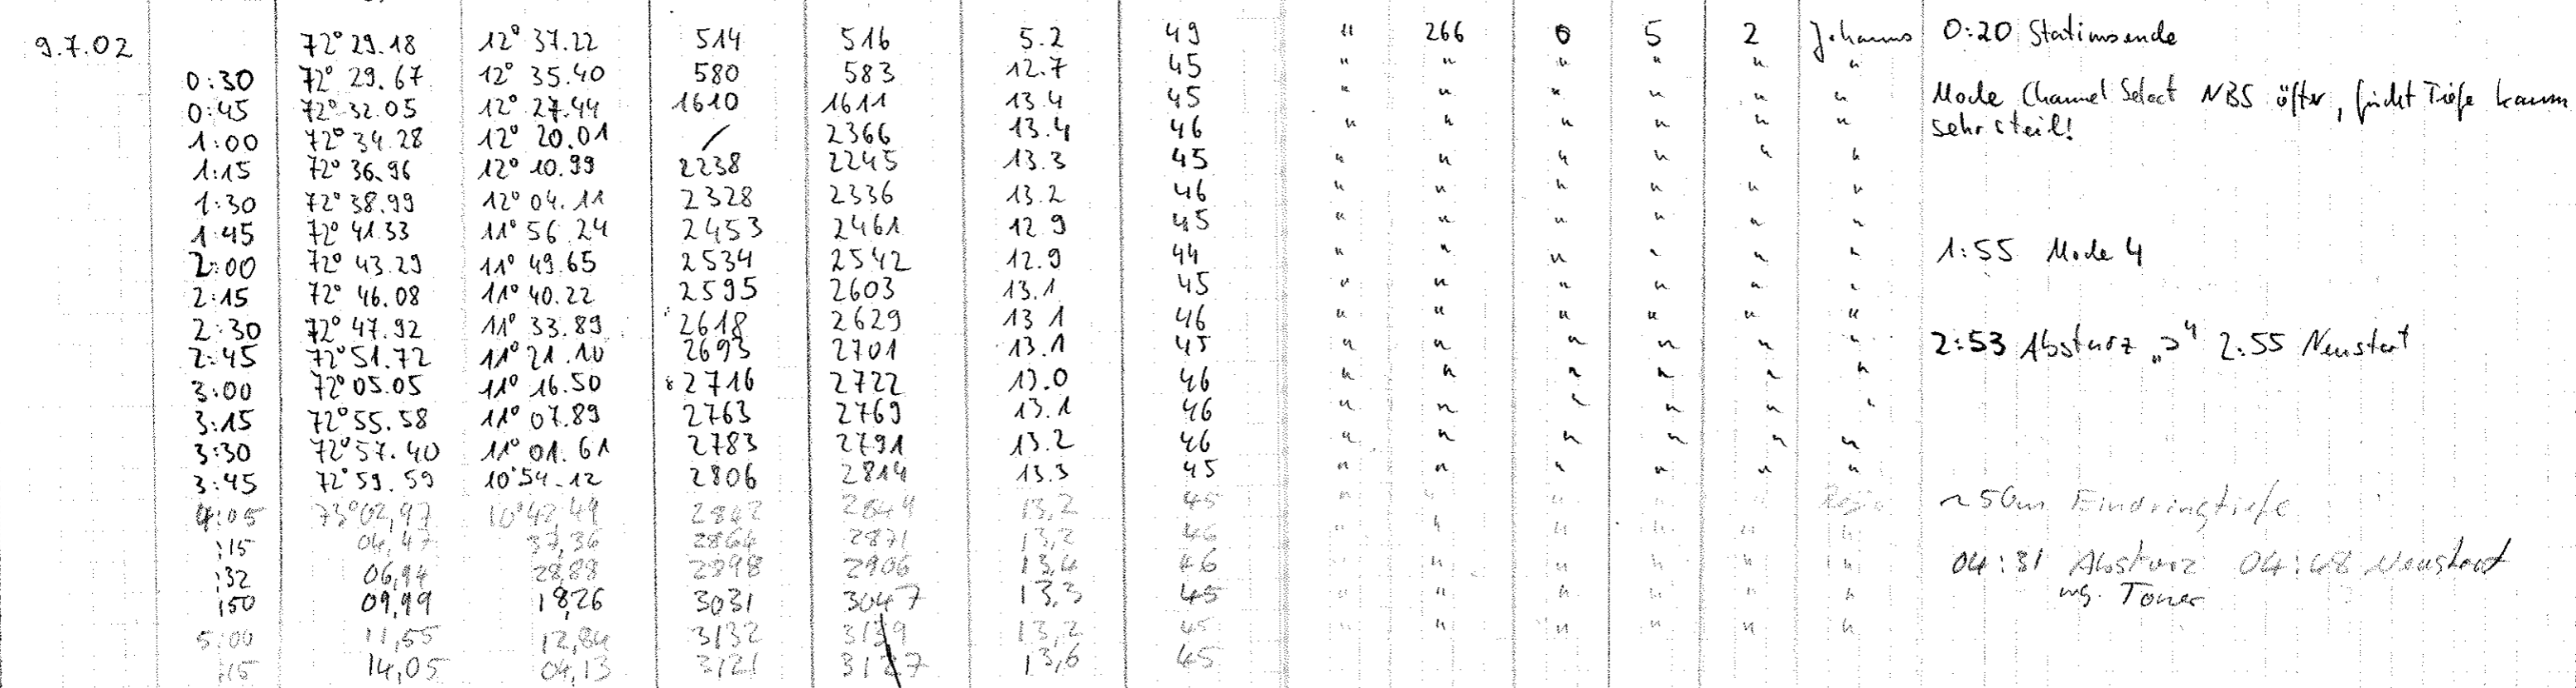 9.7.02 72° 29.18 12° 37.22 514 516 5.2 49 " 266 0 5 2 Johannes 0:20 Stationsende
0:30 72° 29.67 12° 35.40 580 583 12.7 45 " " " " " "
0:45 72° 32.05 12° 27.44 1610 1611 13.4 45 " " " " " " Mode Channel Select NBS öfter, findet Tiefe kaum
1:00 72° 34.28 12° 20.01 / 2366 13.4 46 " " " " " " sehr steil!
1:15 72° 36.96 12° 10.99 2238 2245 13.3 45 " " " " " "
1:30 72° 38.99 12° 04.11 2328 2336 13.2 46 " " " " " "
1:45 72° 41.33 11° 56.24 2453 2461 12.9 45 " " " " " "
2:00 72° 43.29 11° 49.65 2534 2542 12.9 44 " " " " " " 1:55 Mode 4
2:15 72° 46.08 11° 40.22 2595 2603 13.1 45 " " " " " "
2:30 72° 47.92 11° 33.89 2618 2629 13.1 46 " " " " " "
2:45 72° 51.72 11° 21.10 2693 2701 13.1 45 " " " " " " 2:53 Absturz 2:55 Neustart
3:00 72° 05.05 11° 16.50 2716 2722 13.0 46 " " " " " "
3:15 72° 55.58 11° 07.89 2763 2769 13.1 46 " " " " " "
3:30 72° 57.40 11° 01.61 2783 2791 13.2 46 " " " " " "
3:45 72° 59.59 10° 54.12 2806 2814 13.3 45 " " " " " "
4:05 73° 02,97 10° 42,49 2842 2849 13,2 45 " " " " " ~50m Eindringtiefe
:15 04,47 37,36 2864 2871 13,2 46 " " " " " "
:32 06,94 28,88 2898 2906 13,4 46 " " " " " " 04:31 Absturz 04:48 Neustart
:50 09,99 18,26 3031 3047 13,3 45 " " " " " " wg. Toner
5:00 11,55 12,84 3132 3139 13,2 45 " " " " " "
:15 14,05 04,13 3121 3127 13,6 45